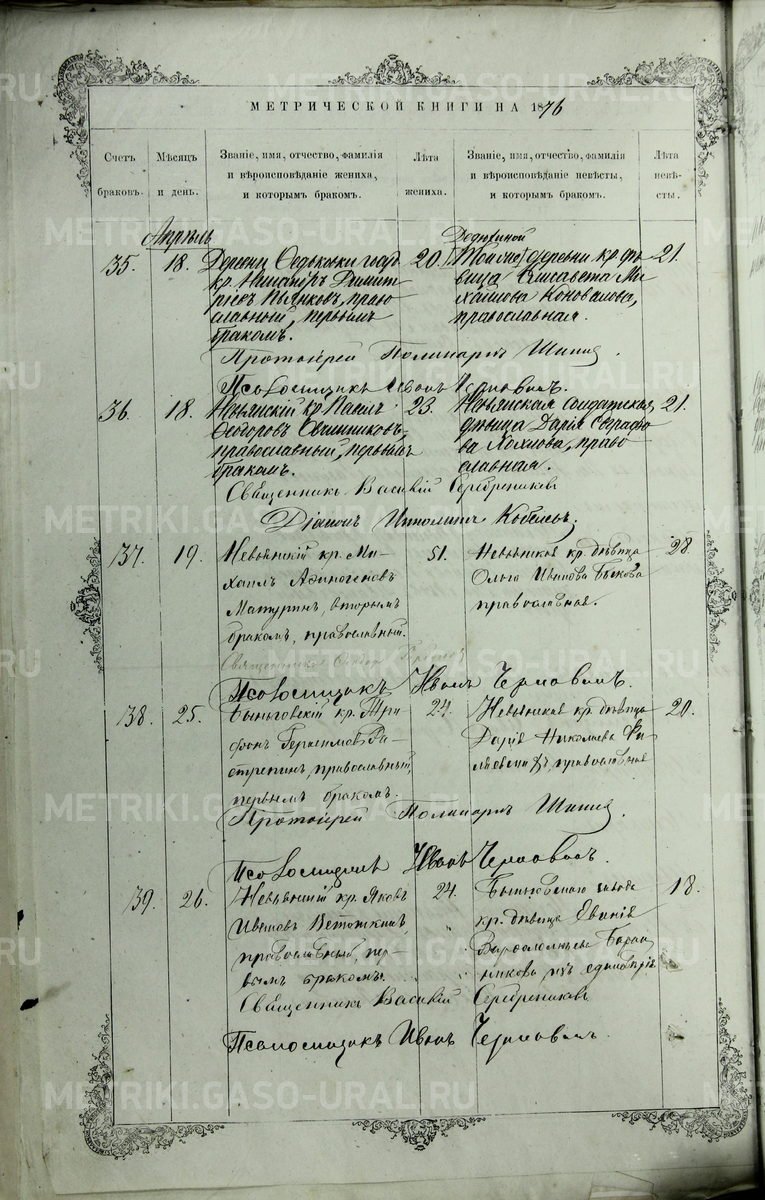 МЕТРИЧЕСКОЙ КНИГИ НА 1876
Счетъ браковъ.
Мѣсяцъ и день.
Званіе, имя, отчество, фамилія и вѣроисповѣданіе жениха, и которымъ бракомъ.
Лѣта жениха.
Званіе, имя, отчество, фамилія и вѣроисповѣданіе невѣсты, и которымъ бракомъ.
Лѣта невѣсты.
Апрѣль
35. 18.
Деревни Федьковки госуд.
кр. Никаноръ Димит
ріевъ Пьянковъ, право
славный, первымъ
бракомъ.
20.
Дедюхиной
деревни кр. дѣ
вица Елисавета Ми
хаилова Коновалова,
православная.
21.
Протоіерей Поликарпъ
Псаломщикъ Иванъ
36. 18.
Невьянскій кр. Павелъ
Ѳеодоровъ Овчинниковъ,
православный, первымъ
бракомъ.
23.
Невьянская солдатская
дѣвица Дарія Серафи
ва Хохлова, право
славная.
21.
Священникъ Василій Серебрениковъ
Діаконъ Ипполитъ Кобелевъ.
37. 19.
Невьянскій кр. Ми-
хаилъ Аѳиногеновъ
Матуринъ, вторымъ
бракомъ, православный.
51.
Невьянская кр. дѣвица
Ольга Иванова Быкова
православная.
28.
Священникъ
Псаломщикъ Иванъ
38. 25.
Быньговскій кр. Три
фонъ Герасимовъ Ра-
стрепинъ, православный,
первымъ бракомъ.
24.
Невьянская кр. дѣвица
Дарія Николаева
православная
20.
Протоіерей Поликарпъ
Псаломщикъ Иванъ
39. 26.
Невьянскій кр. Яковъ
Ивановъ Ветошкинъ,
православный, пер-
вымъ бракомъ.
24.
Быньговскаго завода
кр. дѣвица Евдокія
Варѳоломеева
изъ единовѣрія
18.
Священникъ Василій Серебрениковъ
Псаломщикъ Иванъ
METRIKI.GASO-URAL.RU